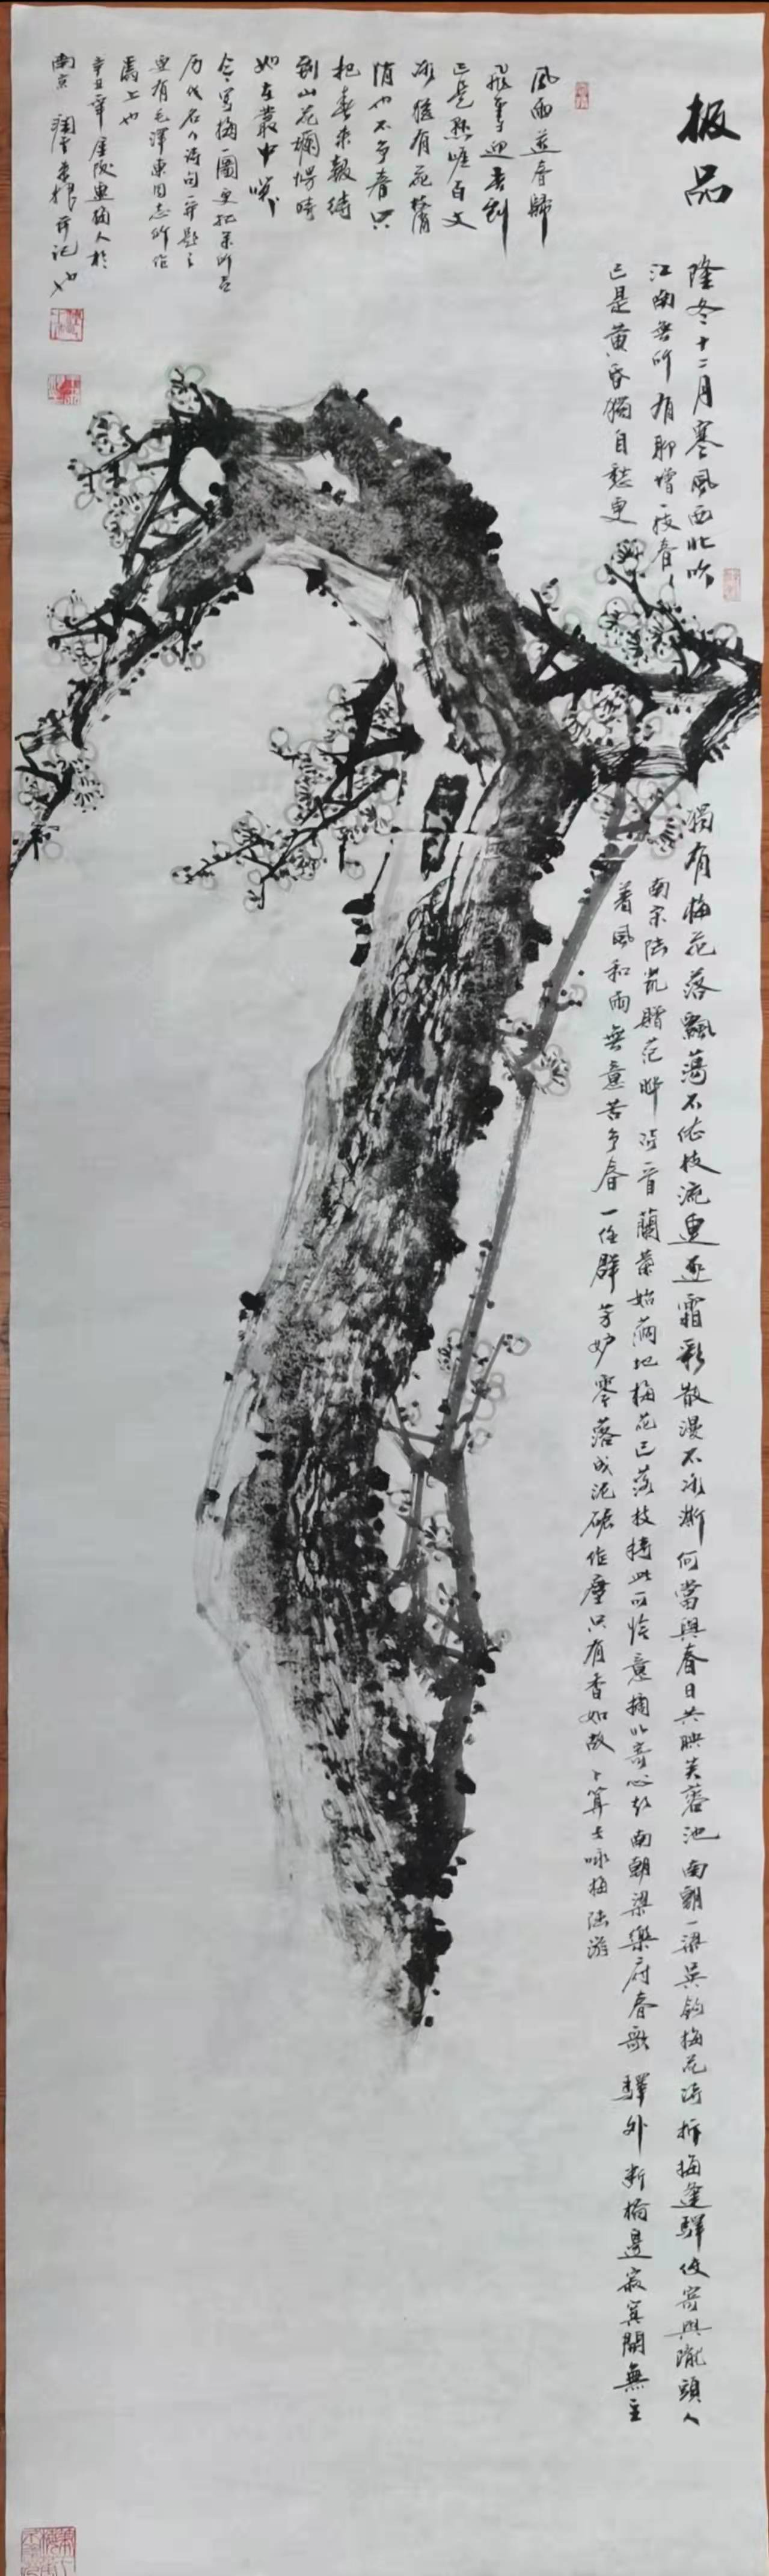 极品
隆冬十二月寒風西北吹獨有梅花落飄蕩不依枝流連逐霜彩散漫不冰澌何當與春日共映芙蓉池南朝一梁吳鈞梅花詩折梅逢驛使寄與隴頭人
江南無所有聊增一枝春南宋陸凱贈范曄詩一首蘭葉始滿地梅花已落枝持此可憐意摘以寄心知南朝梁樂府春歌驛外斷橋邊寂寞開無主
已是黄昏獨自愁更着風和雨無意苦争春一任群芳妒零落成泥碾作塵只有香如故卜算子咏梅陸游
風雨送春歸
飛雪迎春到
已是懸崖百丈
冰猶有花枝
俏也不争春只
把春来報待
到山花爛熳時
她在叢中笑
今写梅一圖更把
历代名人詩句一并題之
更有毛澤東同志所作
焉上也
辛丑年金陵 人於
南京 根并記也